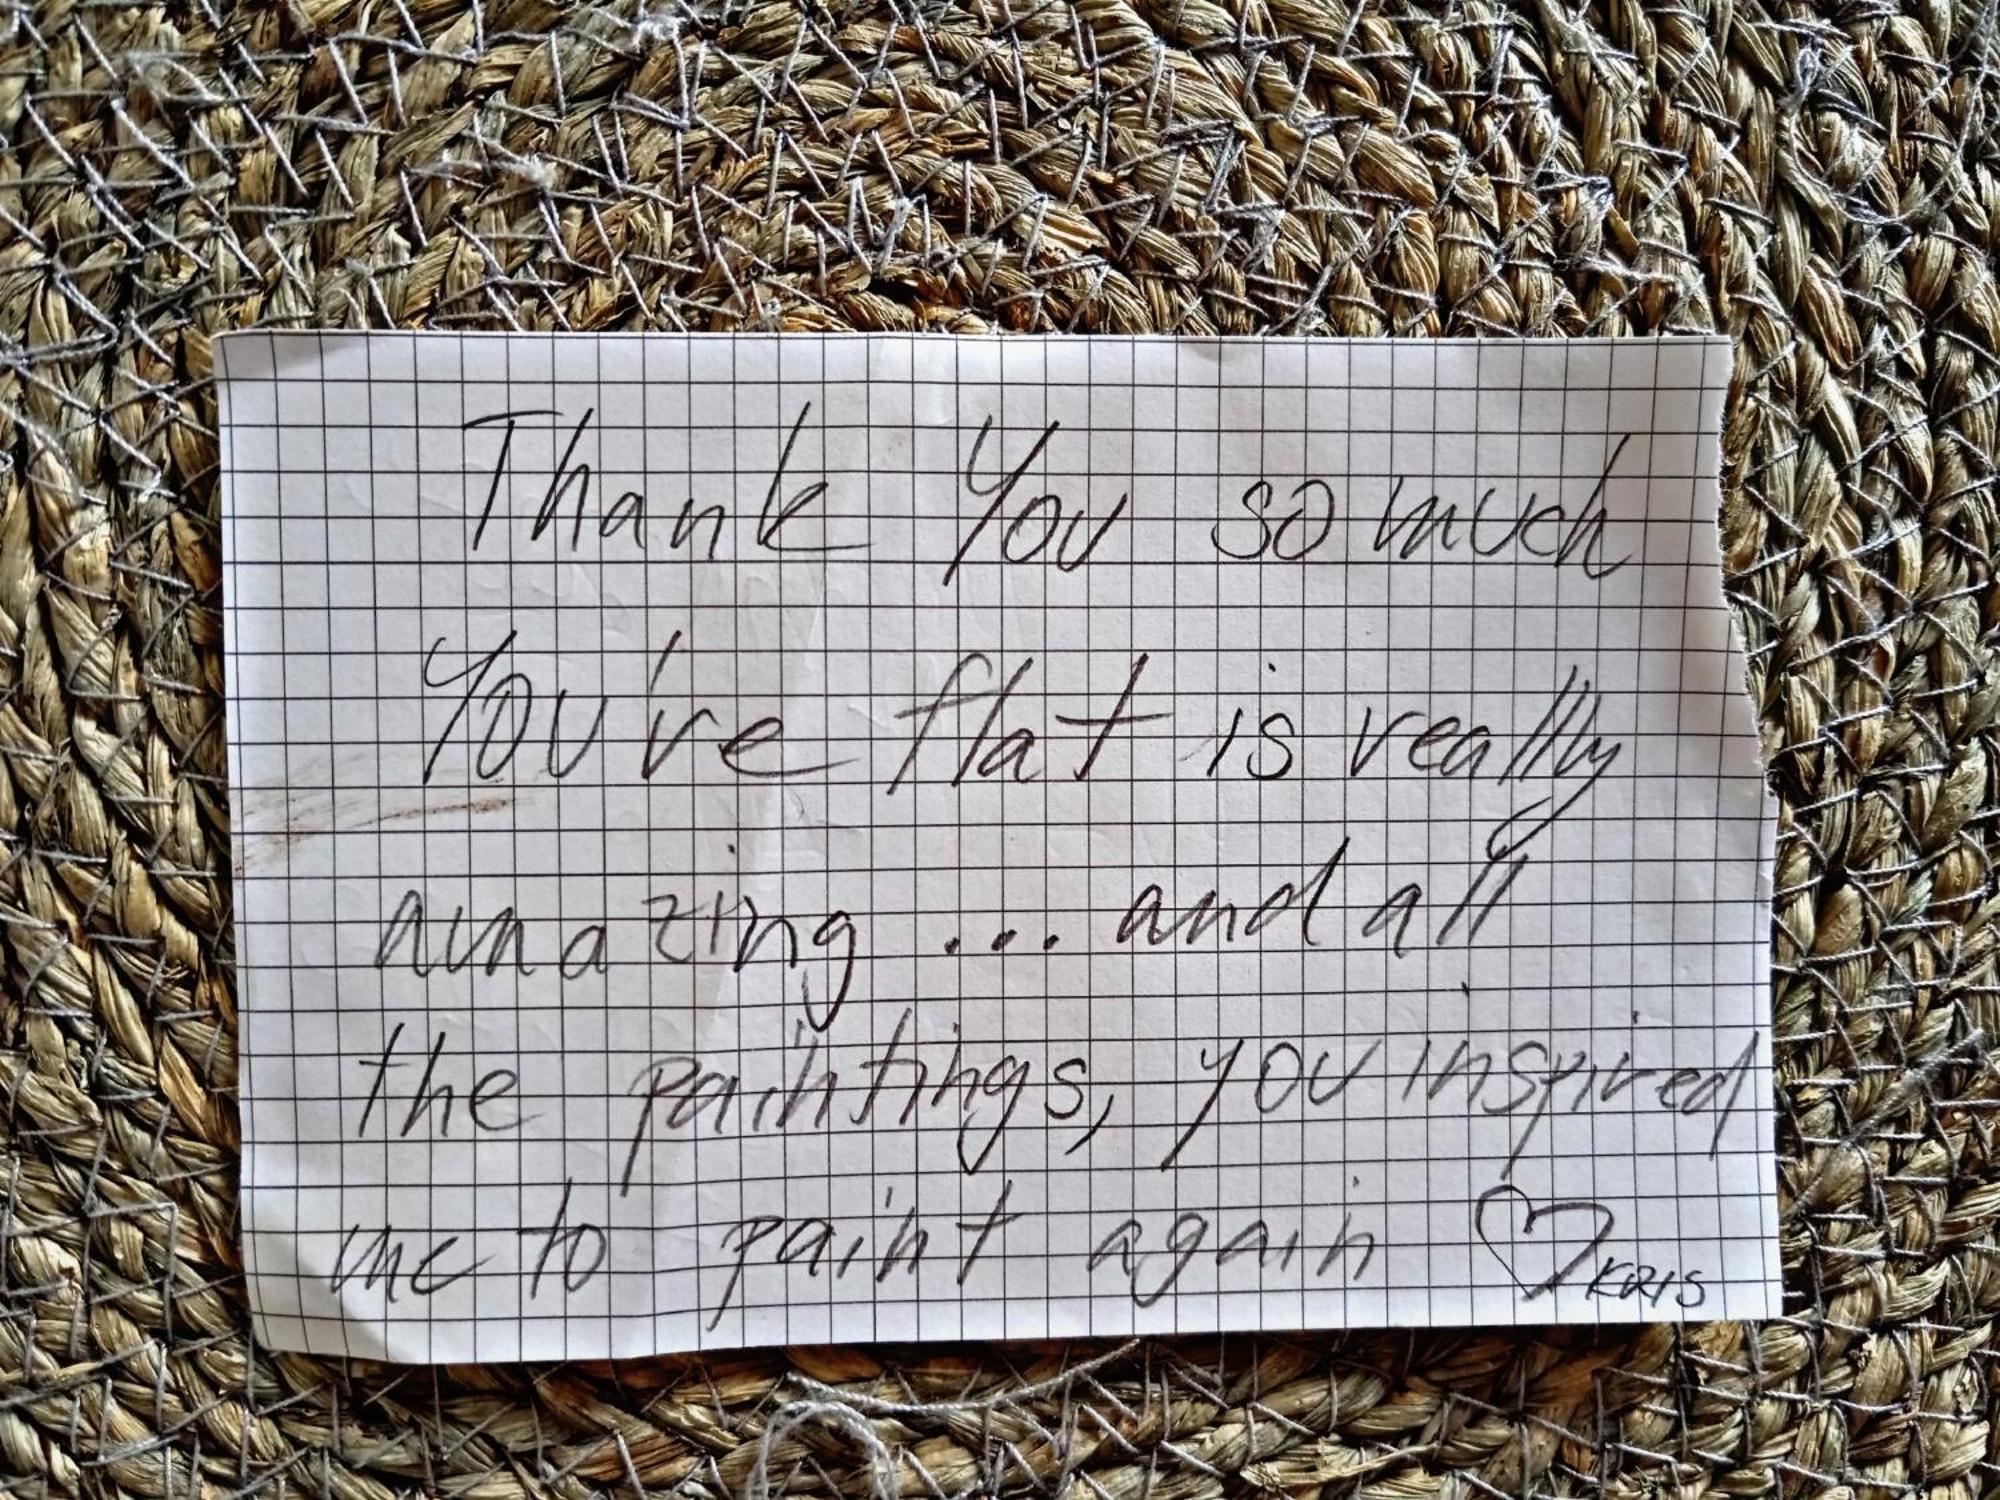 Thank You so much
You're flat is really
amazing ... and all
the paintings, you inspired
me to paint again ♡ KRIS